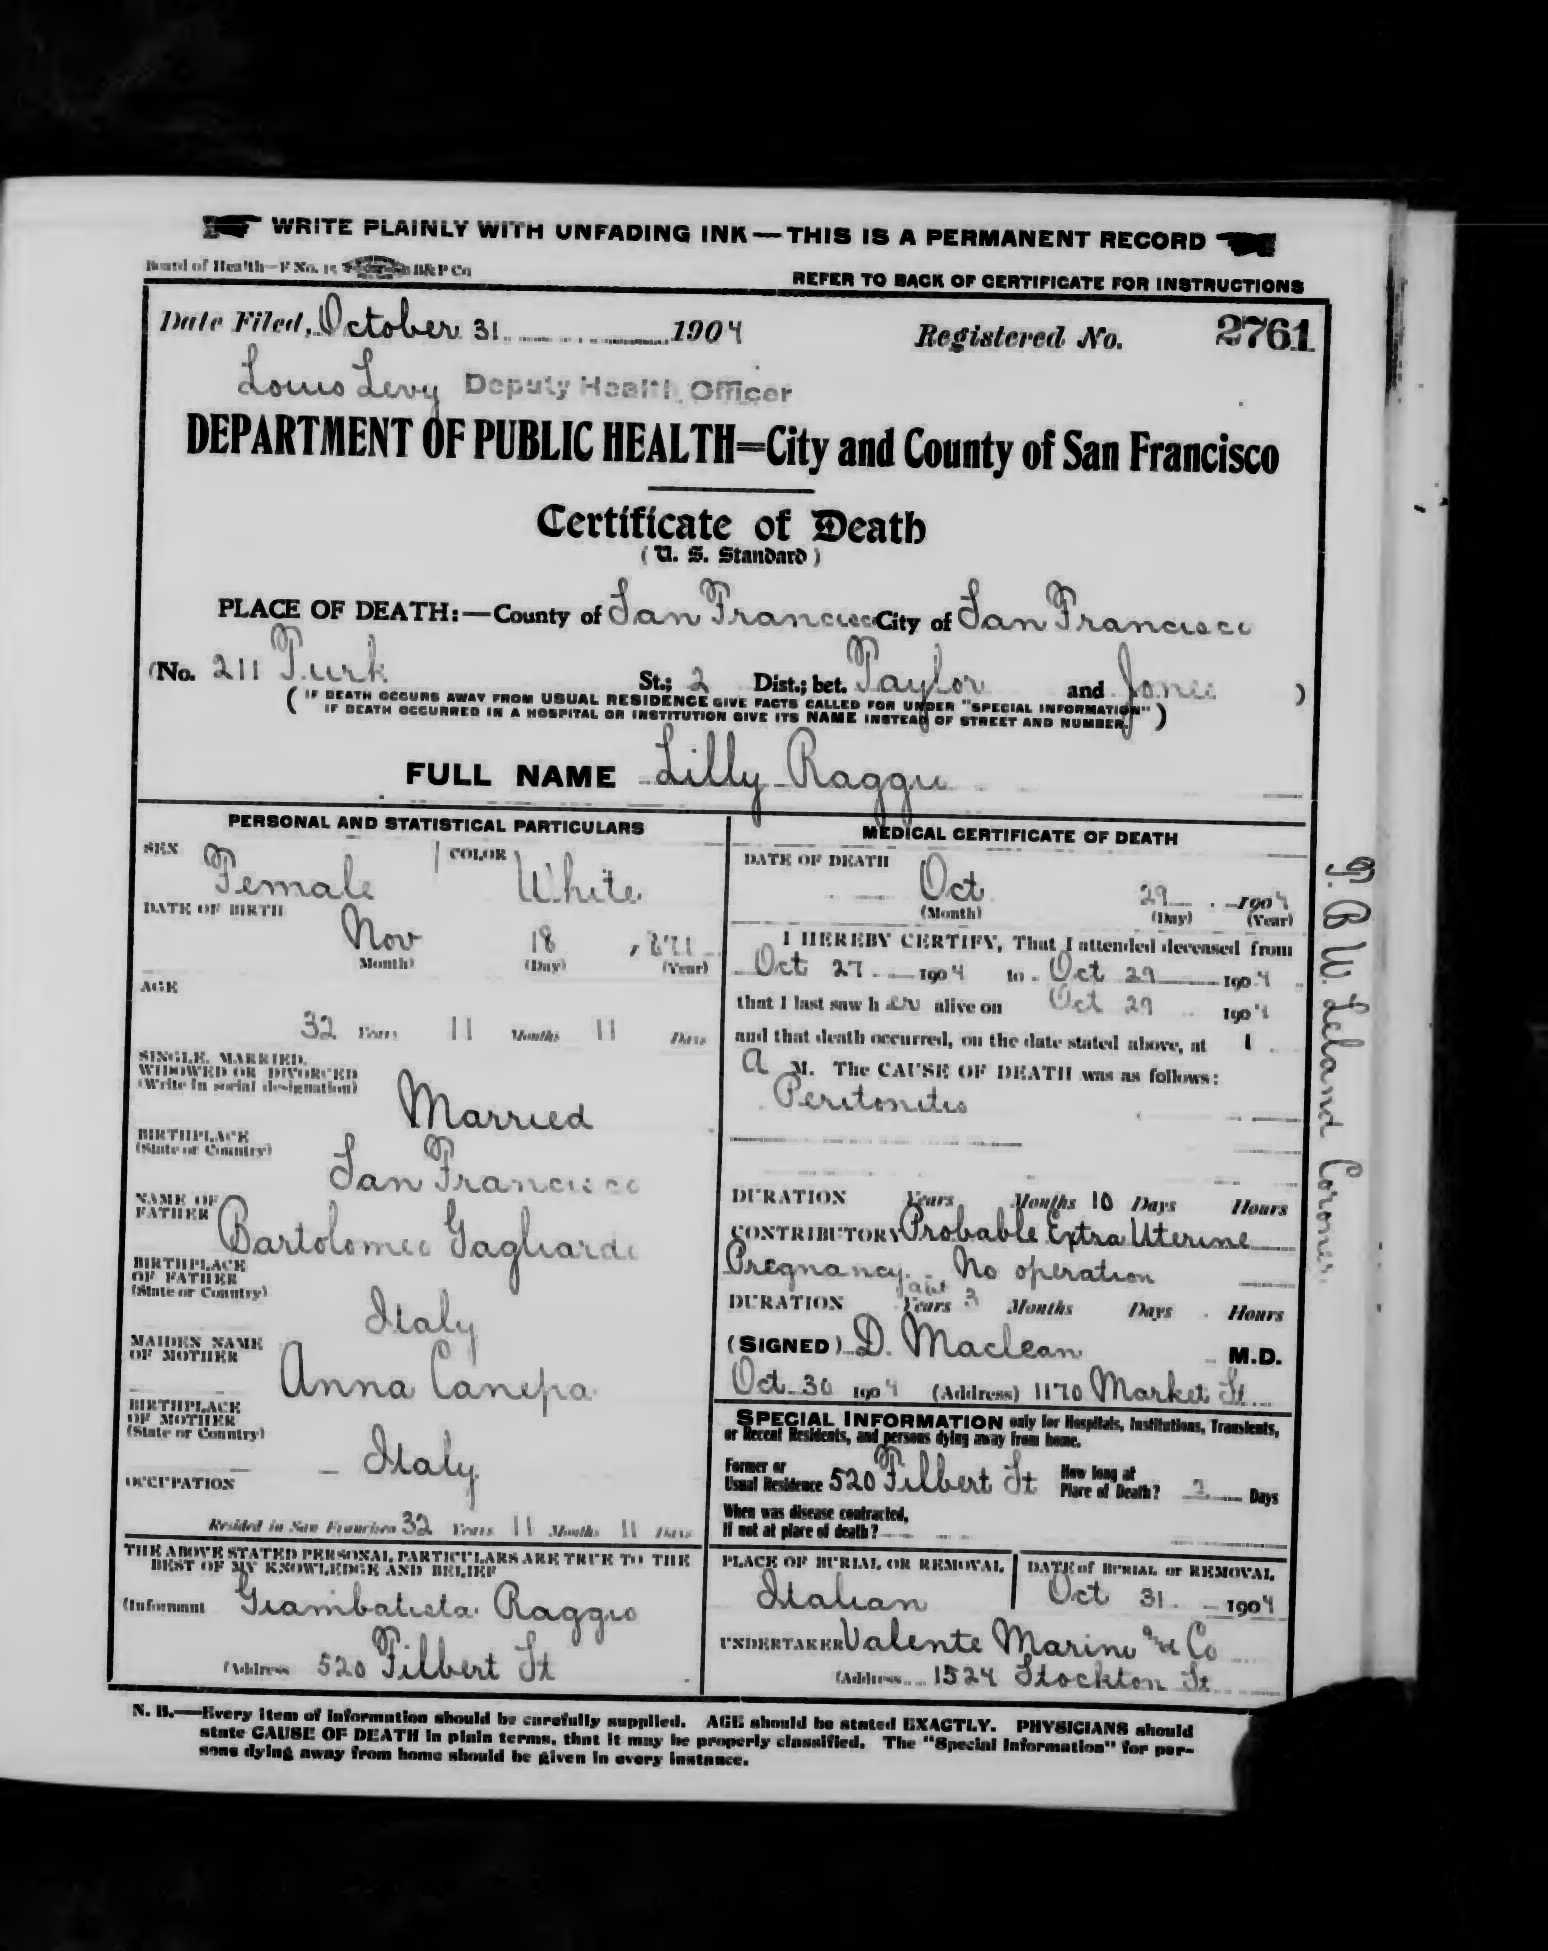 WRITE PLAINLY WITH UNFADING INK — THIS IS A PERMANENT RECORD
Board of Health—F No. 15 B&P Co
REFER TO BACK OF CERTIFICATE FOR INSTRUCTIONS
Date Filed, October 31 1904 Registered No. 2761
Louis Levy Deputy Health Officer
DEPARTMENT OF PUBLIC HEALTH=City and County of San Francisco
Certificate of Death
(U. S. Standard)
PLACE OF DEATH:—County of San Francisco City of San Francisco
(No. 211 Turk St.; 2 Dist.; bet. Taylor and Jones )
( IF DEATH OCCURS AWAY FROM USUAL RESIDENCE GIVE FACTS CALLED FOR UNDER "SPECIAL INFORMATION"
IF DEATH OCCURRED IN A HOSPITAL OR INSTITUTION GIVE ITS NAME INSTEAD OF STREET AND NUMBER. )
FULL NAME Lilly Raggio
PERSONAL AND STATISTICAL PARTICULARS
SEX Female COLOR White
DATE OF BIRTH
Nov 18 , 1871
(Month) (Day) (Year)
AGE
32 Years 11 Months 11 Days
SINGLE, MARRIED,
WIDOWED OR DIVORCED
(Write in social designation)
Married
BIRTHPLACE
(State or Country)
San Francisco
NAME OF
FATHER Bartolomeo Gagliardo
BIRTHPLACE
OF FATHER
(State or Country)
Italy
MAIDEN NAME
OF MOTHER
Anna Canepa
BIRTHPLACE
OF MOTHER
(State or Country)
Italy
OCCUPATION
Resided in San Francisco 32 Years 11 Months 11 Days
THE ABOVE STATED PERSONAL PARTICULARS ARE TRUE TO THE
BEST OF MY KNOWLEDGE AND BELIEF
(Informant Giambatista Raggio
(Address 520 Filbert St
MEDICAL CERTIFICATE OF DEATH
DATE OF DEATH
Oct 29 1904
(Month) (Day) (Year)
I HEREBY CERTIFY, That I attended deceased from
Oct 27 1904 to Oct 29 1904
that I last saw her alive on Oct 29 1904
and that death occurred, on the date stated above, at 1
A M. The CAUSE OF DEATH was as follows:
Peritonitis
DURATION Years Months 10 Days Hours
CONTRIBUTORY Probable Extra Uterine
Pregnancy. No operation
DURATION Years 3 Months Days Hours
(SIGNED) D. Maclean M.D.
Oct 30 1904 (Address) 1170 Market St
SPECIAL INFORMATION only for Hospitals, Institutions, Transients,
or Recent Residents, and persons dying away from home.
Former or
Usual Residence 520 Filbert St
How long at
Place of Death? 2 Days
When was disease contracted,
If not at place of death?
PLACE OF BURIAL OR REMOVAL
Italian
DATE of BURIAL or REMOVAL
Oct 31 1904
UNDERTAKER Valente Marini and Co
(Address 1524 Stockton St
N. B.—Every item of information should be carefully supplied. AGE should be stated EXACTLY. PHYSICIANS should
state CAUSE OF DEATH in plain terms, that it may be properly classified. The "Special Information" for per-
sons dying away from home should be given in every instance.
T. B W. Leland Coroner.